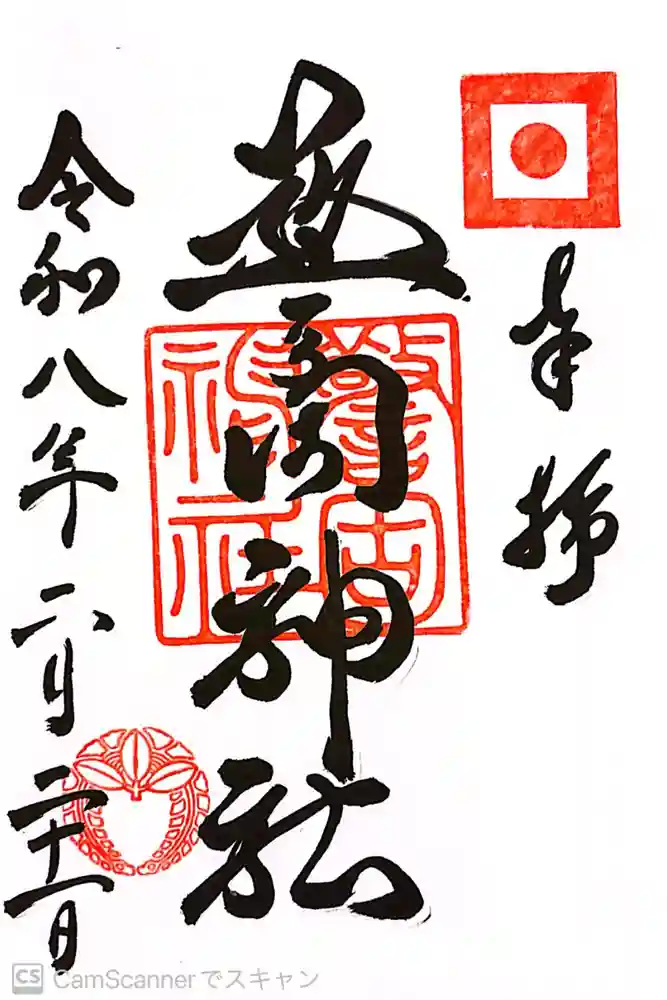 奉拝
警固神社
警固神社
令和八年二月二十一日
CS CamScannerでスキャン